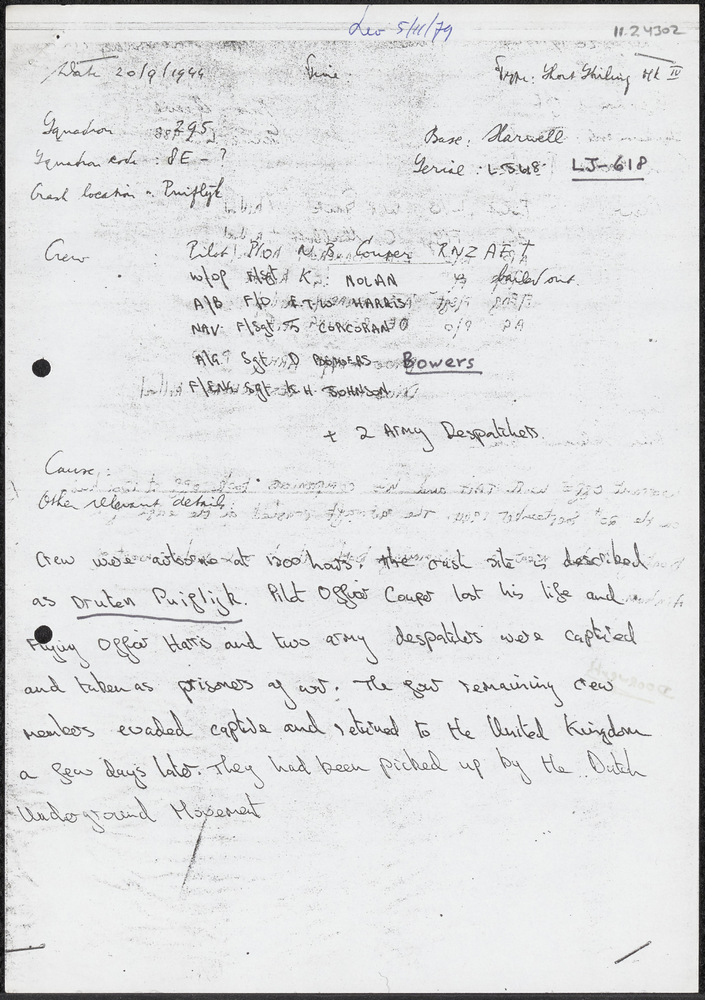 Leo 5/11/79
11.24302
Date 20/9/1944 Time: Type: Short Stirling Mk IV
Squadron 295
Squadron code: 8E - ? Base: Harwell
Serial: LJ-618
Crash location: Puiflijk
Crew : Pilot: P/O N B Couper RNZAF †
W/OP F/Sgt K. NOLAN bailed out
A/B F/O E.T.W. HARRIS
NAV: F/Sgt J CORCORAN
A/G? Sgt D Bowers
F/ENG Sgt K H. JOHNSON
+ 2 Army Despatchers.
Cause:
Other relevant details
Crew were at 1200 hours. The crash site is described
as Druten Puiflijk. Pilot Officer Couper lost his life and
Flying Officer Harris and two army despatchers were captured
and taken as prisoners of war. The four remaining crew
members evaded captive and returned to the United Kingdom
a few days later. They had been picked up by the Dutch
Underground Movement